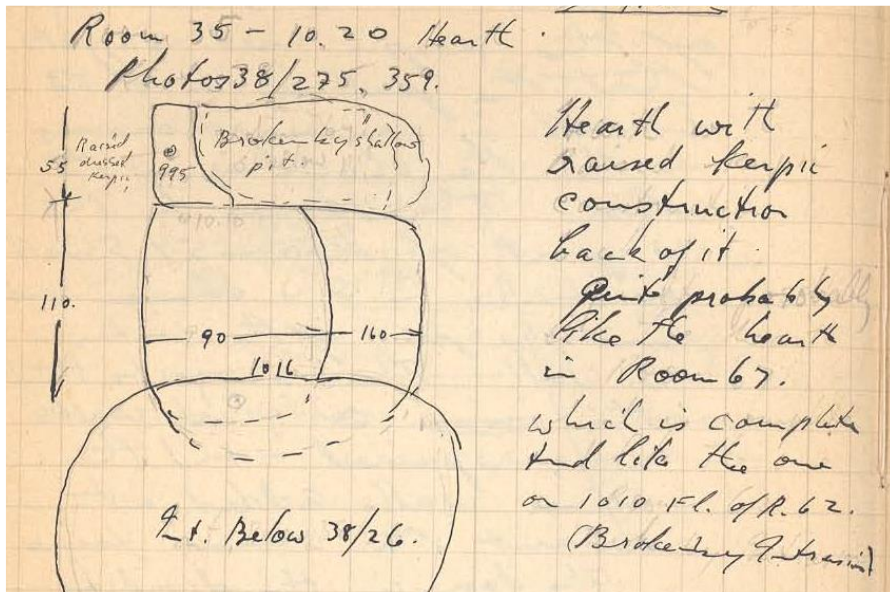 Room 35 - 10.20 Hearth.
Photos 38/275, 359.
Raised
dressed
kerpic
55
995
Broken by shallow
pit.
10.10
110.
90
160
1016
Int. Below 38/26.
Hearth with
raised kerpic
construction
back of it.
Quite probably
like the hearth
in Room 67.
which is complete
and like the one
on 1010 Fl. of R. 62.
(Broken by Intrusion)